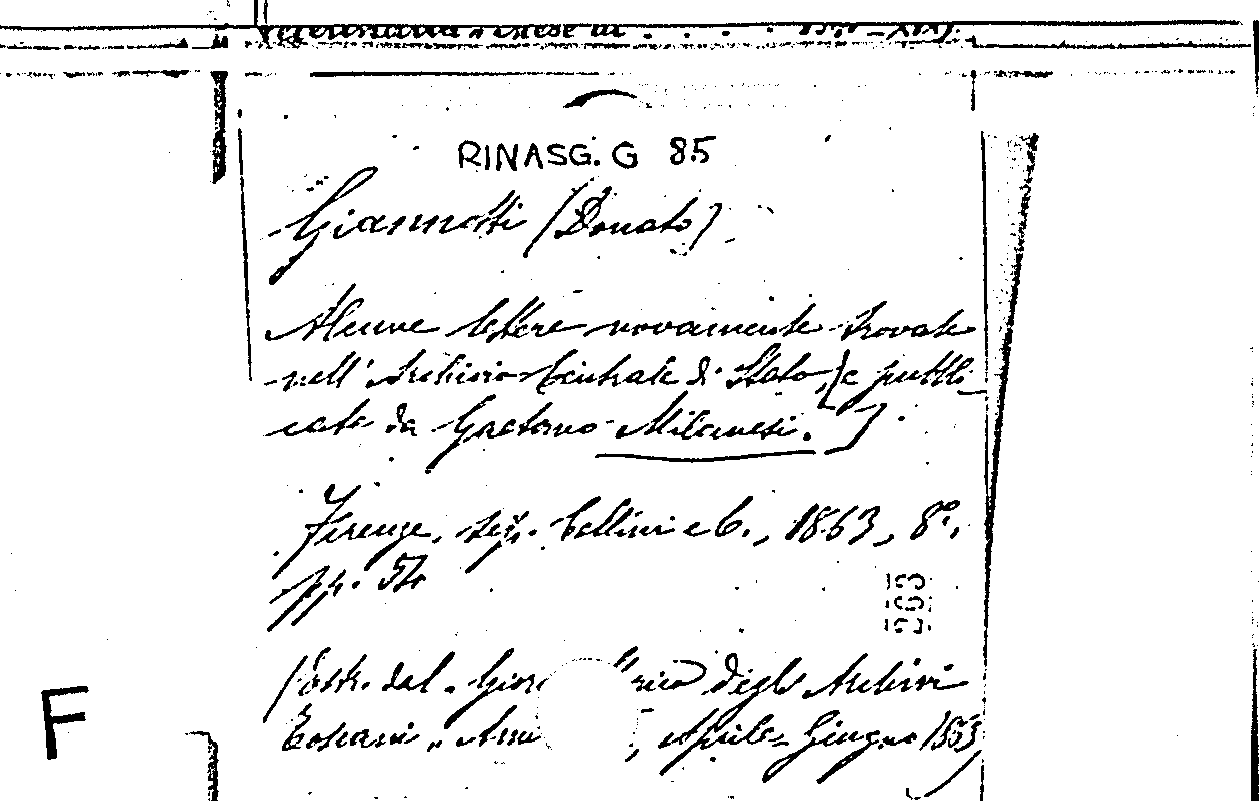 RINASG. G 85
Giannotti (Donato)
Alcune lettere novamente trovate
nell'Archivio Centrale di Stato, [e pubbli-
cate da Gaetano Milanesi.]
Firenze, tip. Cellini e C., 1863, 8º,
pp. 54
263
(Estr. dal " Gior rico degli Archivi
Toscani " , Aprile-Giugno 1863
F